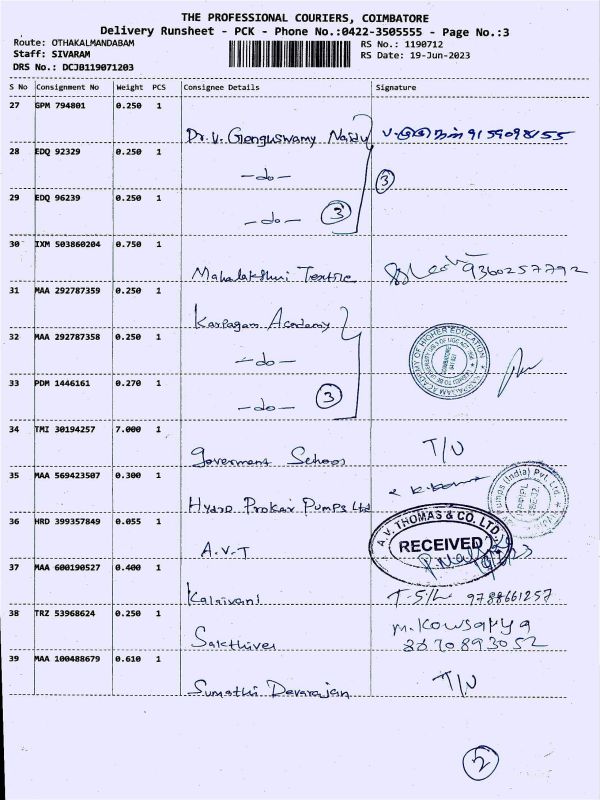 THE PROFESSIONAL COURIERS, COIMBATORE
Delivery Runsheet - PCK - Phone No.:0422-3505555 - Page No.:3
Route: OTHAKALMANDABAM RS No.: 1190712
Staff: SIVARAM RS Date: 19-Jun-2023
DRS No.: DCJ0119071203
S No Consignment No Weight PCS Consignee Details Signature
27 GPM 794801 0.250 1
Dr. V. Genguswamy Naidu 9159098455
28 EDQ 92329 0.250 1
-do- 3
29 EDQ 96239 0.250 1
-do- 3
30 IXM 503860204 0.750 1
Mahalakshmi Textile 9360257792
31 MAA 292787359 0.250 1
Karpagam Academy
32 MAA 292787358 0.250 1
-do-
KARPAGAM ACADEMY OF HIGHER EDUCATION
33 PDM 1446161 0.270 1
-do- 3
34 TMI 30194257 7.000 1
Goverment School T/U
35 MAA 569423507 0.300 1
Hydro Prokav Pumps Ltd
Pumps (India) Pvt. Ltd.
36 HRD 399357849 0.055 1
A.V.T
A.V. THOMAS & CO. LTD.
RECEIVED
37 MAA 600190527 0.400 1
Kalaivani 9788661257
38 TRZ 53968624 0.250 1
M. Kowsalya
Sakthivel 8870893052
39 MAA 100488679 0.610 1
Sumathi Devarajan T/U